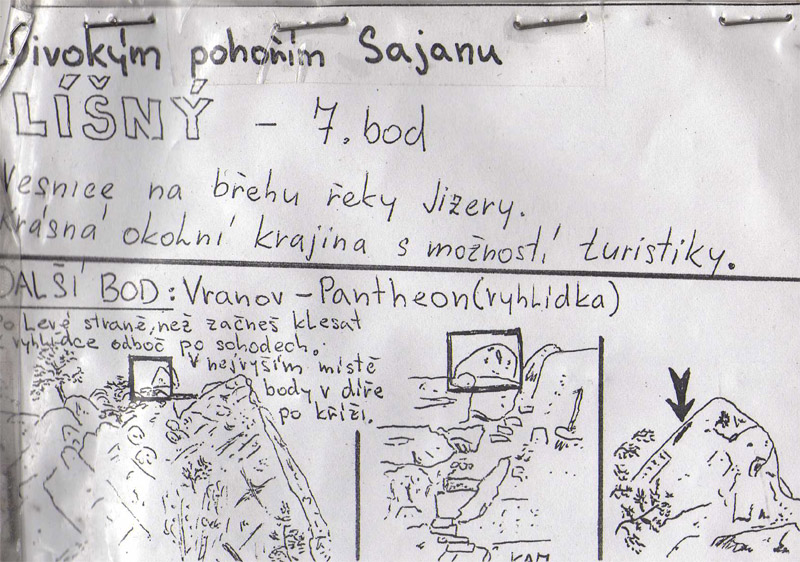 Divokým pohořím Sajanu
LÍŠNÝ – 7. bod
Vesnice na břehu řeky Jizery.
Krásná okolní krajina s možností turistiky.
DALŠÍ BOD: Vranov – Pantheon (vyhlídka)
Po Levé straně, než začneš klesat
k vyhlídce odboč po schodech.
V nejvyšším místě
body v díře
po kříži.
KAM